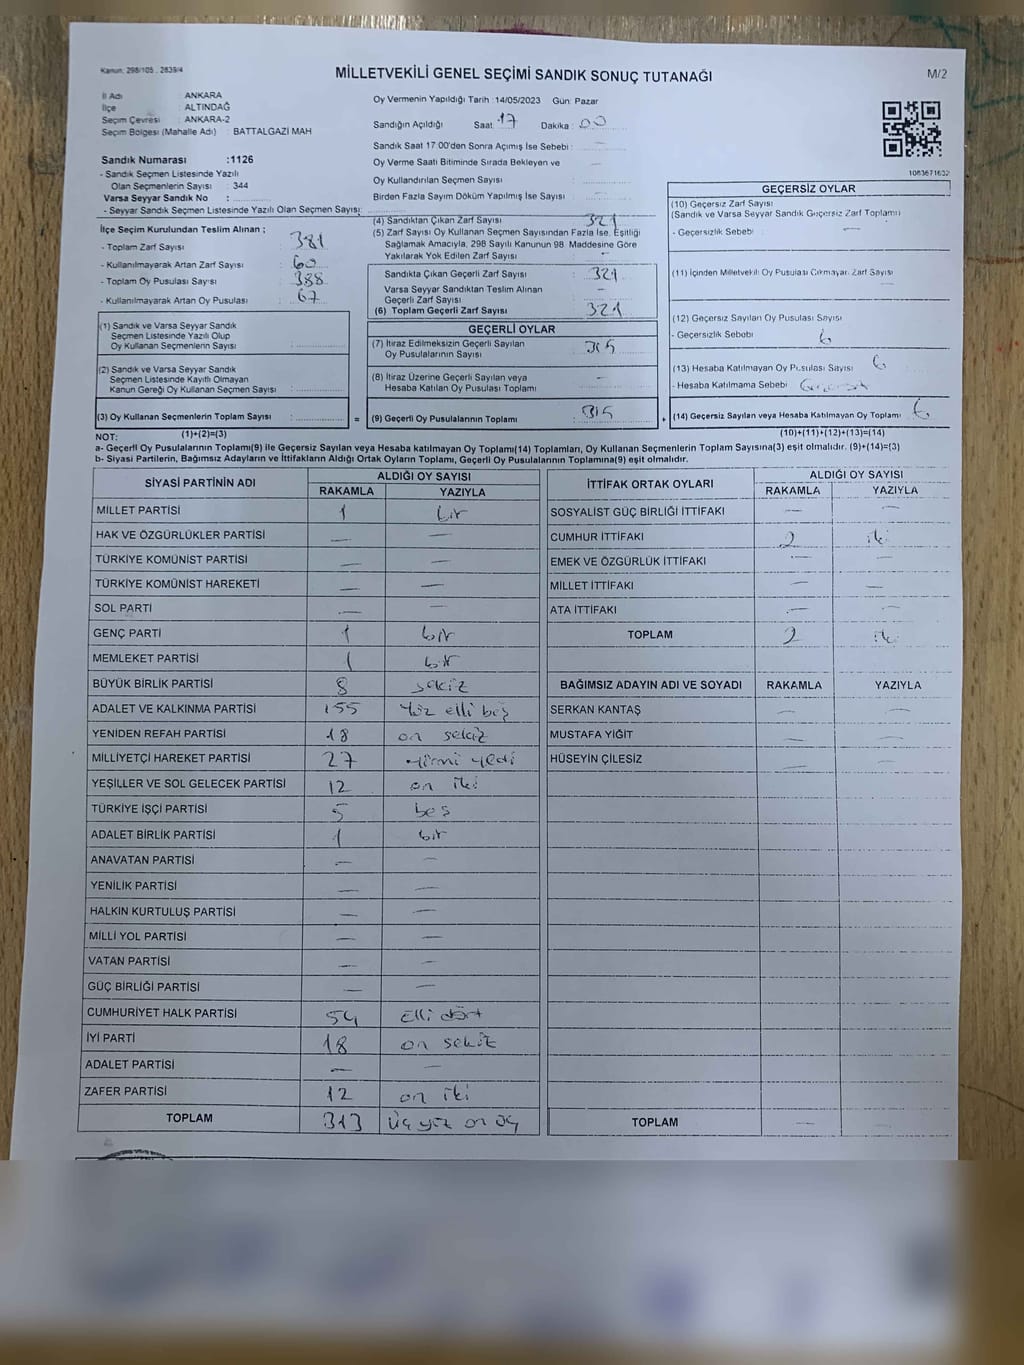 Kanun: 298/105 , 2839/4
MİLLETVEKİLİ GENEL SEÇİMİ SANDIK SONUÇ TUTANAĞI
M/2
İl Adı : ANKARA
İlçe : ALTINDAĞ
Seçim Çevresi : ANKARA-2
Seçim Bölgesi (Mahalle Adı) : BATTALGAZİ MAH
Oy Vermenin Yapıldığı Tarih :14/05/2023 Gün: Pazar
Sandığın Açıldığı Saat 17 Dakika : 00
Sandık Saat 17:00'den Sonra Açımış İse Sebebi : —
Oy Verme Saati Bitiminde Sırada Bekleyen ve
Oy Kullandırılan Seçmen Sayısı :
Birden Fazla Sayım Döküm Yapılmış İse Sayısı : —
1063671632
Sandık Numarası :1126
- Sandık Seçmen Listesinde Yazılı
Olan Seçmenlerin Sayısı : 344
Varsa Seyyar Sandık No :
- Seyyar Sandık Seçmen Listesinde Yazılı Olan Seçmen Sayısı:
İlçe Seçim Kurulundan Teslim Alınan ;
- Toplam Zarf Sayısı : 381
- Kullanılmayarak Artan Zarf Sayısı : 60
- Toplam Oy Pusulası Sayısı : 388
- Kullanılmayarak Artan Oy Pusulası : 67
(1) Sandık ve Varsa Seyyar Sandık
Seçmen Listesinde Yazılı Olup
Oy Kullanan Seçmenlerin Sayısı :
(2) Sandık ve Varsa Seyyar Sandık
Seçmen Listesinde Kayıtlı Olmayan
Kanun Gereği Oy Kullanan Seçmen Sayısı :
(3) Oy Kullanan Seçmenlerin Toplam Sayısı :
(1)+(2)=(3)
(4) Sandıktan Çıkan Zarf Sayısı : 321
(5) Zarf Sayısı Oy Kullanan Seçmen Sayısından Fazla İse, Eşitliği
Sağlamak Amacıyla, 298 Sayılı Kanunun 98. Maddesine Göre
Yakılarak Yok Edilen Zarf Sayısı : —
Sandıkta Çıkan Geçerli Zarf Sayısı : 321
Varsa Seyyar Sandıktan Teslim Alınan
Geçerli Zarf Sayısı : —
(6) Toplam Geçerli Zarf Sayısı : 321
GEÇERLİ OYLAR
(7) İtiraz Edilmeksizin Geçerli Sayılan
Oy Pusulalarının Sayısı : 315
(8) İtiraz Üzerine Geçerli Sayılan veya
Hesaba Katılan Oy Pusulası Toplamı : —
= (9) Geçerli Oy Pusulalarının Toplamı : 315 +
GEÇERSİZ OYLAR
(10) Geçersiz Zarf Sayısı
(Sandık ve Varsa Seyyar Sandık Geçersiz Zarf Toplamı)
- Geçersizlik Sebebi : —
(11) İçinden Milletvekili Oy Pusulası Çıkmayan Zarf Sayısı
—
(12) Geçersiz Sayılan Oy Pusulası Sayısı
- Geçersizlik Sebebi : 6
(13) Hesaba Katılmayan Oy Pusulası Sayısı : 6
- Hesaba Katılmama Sebebi :
(14) Geçersiz Sayılan veya Hesaba Katılmayan Oy Toplamı : 6
(10)+(11)+(12)+(13)=(14)
NOT:
a- Geçerli Oy Pusulalarının Toplamı(9) ile Geçersiz Sayılan veya Hesaba katılmayan Oy Toplamı(14) Toplamları, Oy Kullanan Seçmenlerin Toplam Sayısına(3) eşit olmalıdır. (9)+(14)=(3)
b- Siyasi Partilerin, Bağımsız Adayların ve İttifakların Aldığı Ortak Oyların Toplamı, Geçerli Oy Pusulalarının Toplamına(9) eşit olmalıdır.
SİYASİ PARTİNİN ADI ALDIĞI OY SAYISI
RAKAMLA YAZIYLA
MİLLET PARTİSİ 1 bir
HAK VE ÖZGÜRLÜKLER PARTİSİ — —
TÜRKİYE KOMÜNİST PARTİSİ — —
TÜRKİYE KOMÜNİST HAREKETİ — —
SOL PARTİ — —
GENÇ PARTİ 1 bir
MEMLEKET PARTİSİ 1 bir
BÜYÜK BİRLİK PARTİSİ 8 sekiz
ADALET VE KALKINMA PARTİSİ 155 Yüz elli beş
YENİDEN REFAH PARTİSİ 18 on sekiz
MİLLİYETÇİ HAREKET PARTİSİ 27 yirmi yedi
YEŞİLLER VE SOL GELECEK PARTİSİ 12 on iki
TÜRKİYE İŞÇİ PARTİSİ 5 beş
ADALET BİRLİK PARTİSİ 1 bir
ANAVATAN PARTİSİ — —
YENİLİK PARTİSİ — —
HALKIN KURTULUŞ PARTİSİ — —
MİLLİ YOL PARTİSİ — —
VATAN PARTİSİ — —
GÜÇ BİRLİĞİ PARTİSİ — —
CUMHURİYET HALK PARTİSİ 54 Elli dört
İYİ PARTİ 18 on sekiz
ADALET PARTİSİ — —
ZAFER PARTİSİ 12 on iki
TOPLAM 313 Üç yüz on üç
İTTİFAK ORTAK OYLARI ALDIĞI OY SAYISI
RAKAMLA YAZIYLA
SOSYALİST GÜÇ BİRLİĞİ İTTİFAKI — —
CUMHUR İTTİFAKI 2 iki
EMEK VE ÖZGÜRLÜK İTTİFAKI — —
MİLLET İTTİFAKI — —
ATA İTTİFAKI — —
TOPLAM 2 iki
BAĞIMSIZ ADAYIN ADI VE SOYADI RAKAMLA YAZIYLA
SERKAN KANTAŞ — —
MUSTAFA YİĞİT — —
HÜSEYİN ÇİLESİZ — —
TOPLAM — —